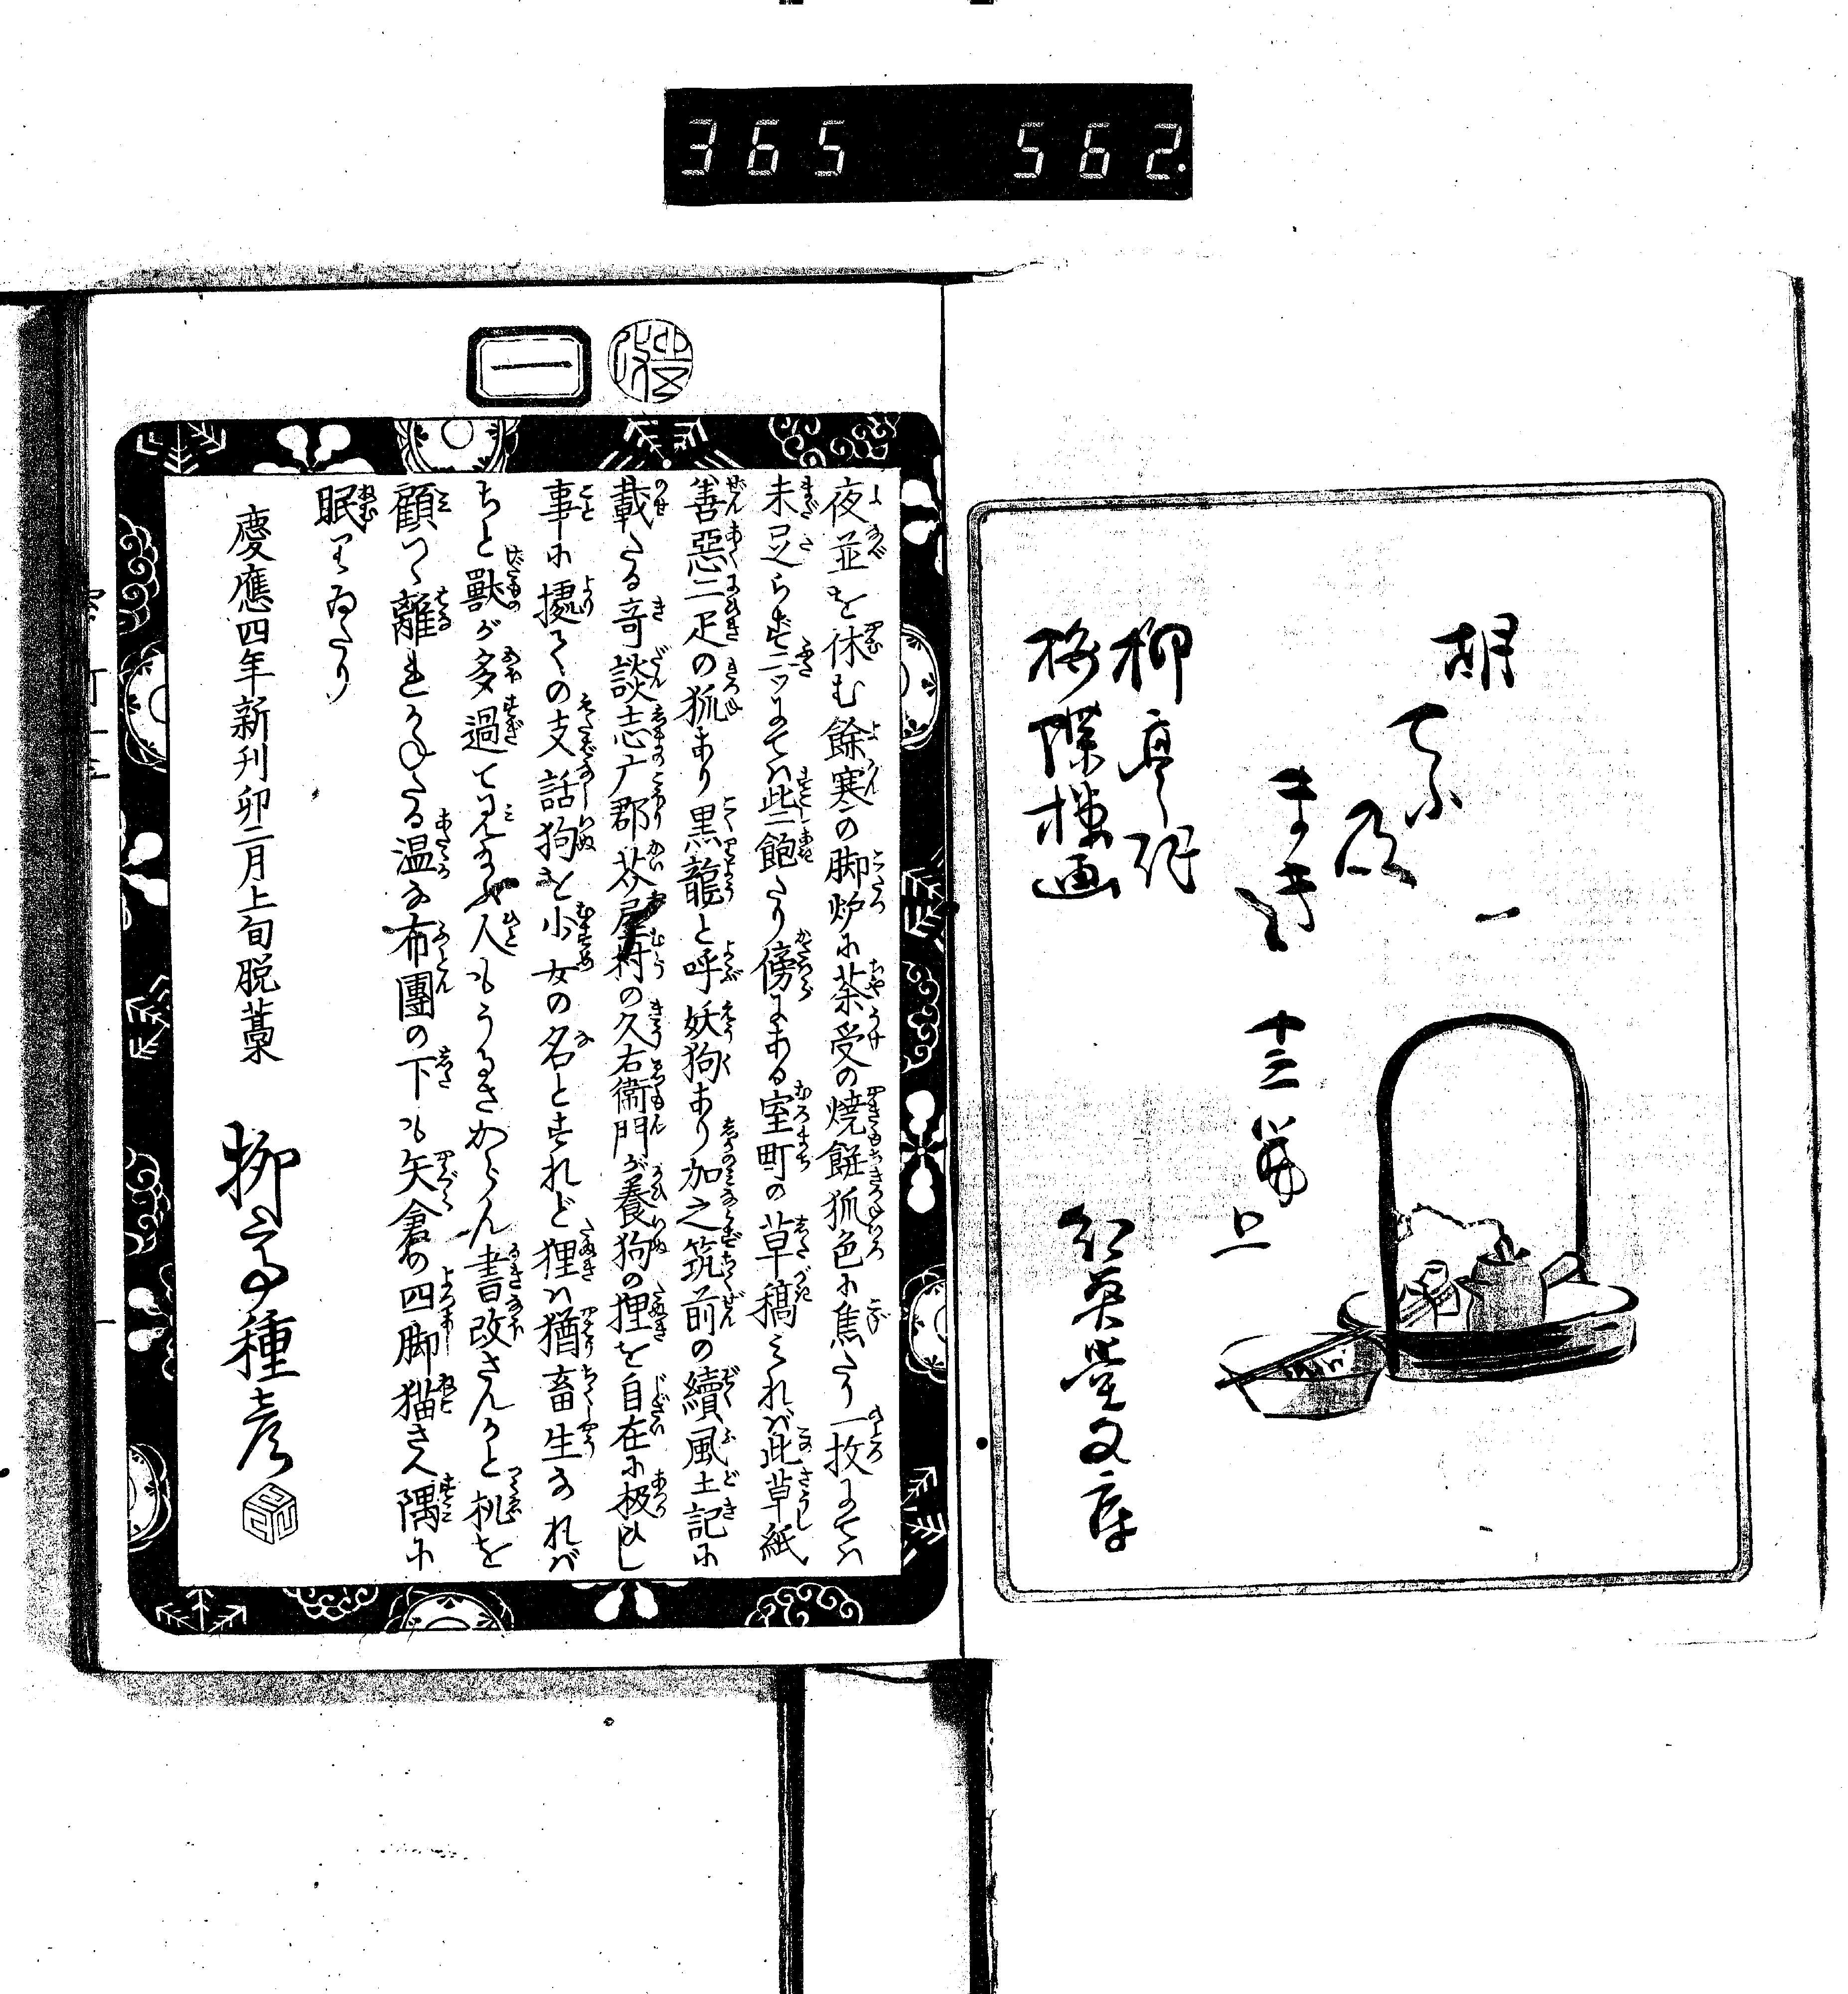 365 562
胡
てふ
一
まき
十三篇
上
柳亭作
梅蝶楼画
紅英堂文庫
一
夜並を休む餘寒の脚炉に茶受の焼餅狐色に焦たり一枚にては
未足らず二ツにては些飽たり傍にある室町の草稿みれば此草紙
善惡二疋の狐あり黒龍と呼妖狗あり加之筑前の續風土記に
載たる竒談志广郡芥屋村の久右衞門が養狗の狸を自在に扱ひし
事に據てこの支話狗を小女の名とすれど狸は猶畜生なれば
ちと獸が多過て見る人もうるさからん書改さんかと机を
顧つゝ離れかねたる温な布團の下も矢倉の四脚猫さへ隅に
眠りゐたり
慶應四年新刊卯二月上旬脱藁
柳亭種彦